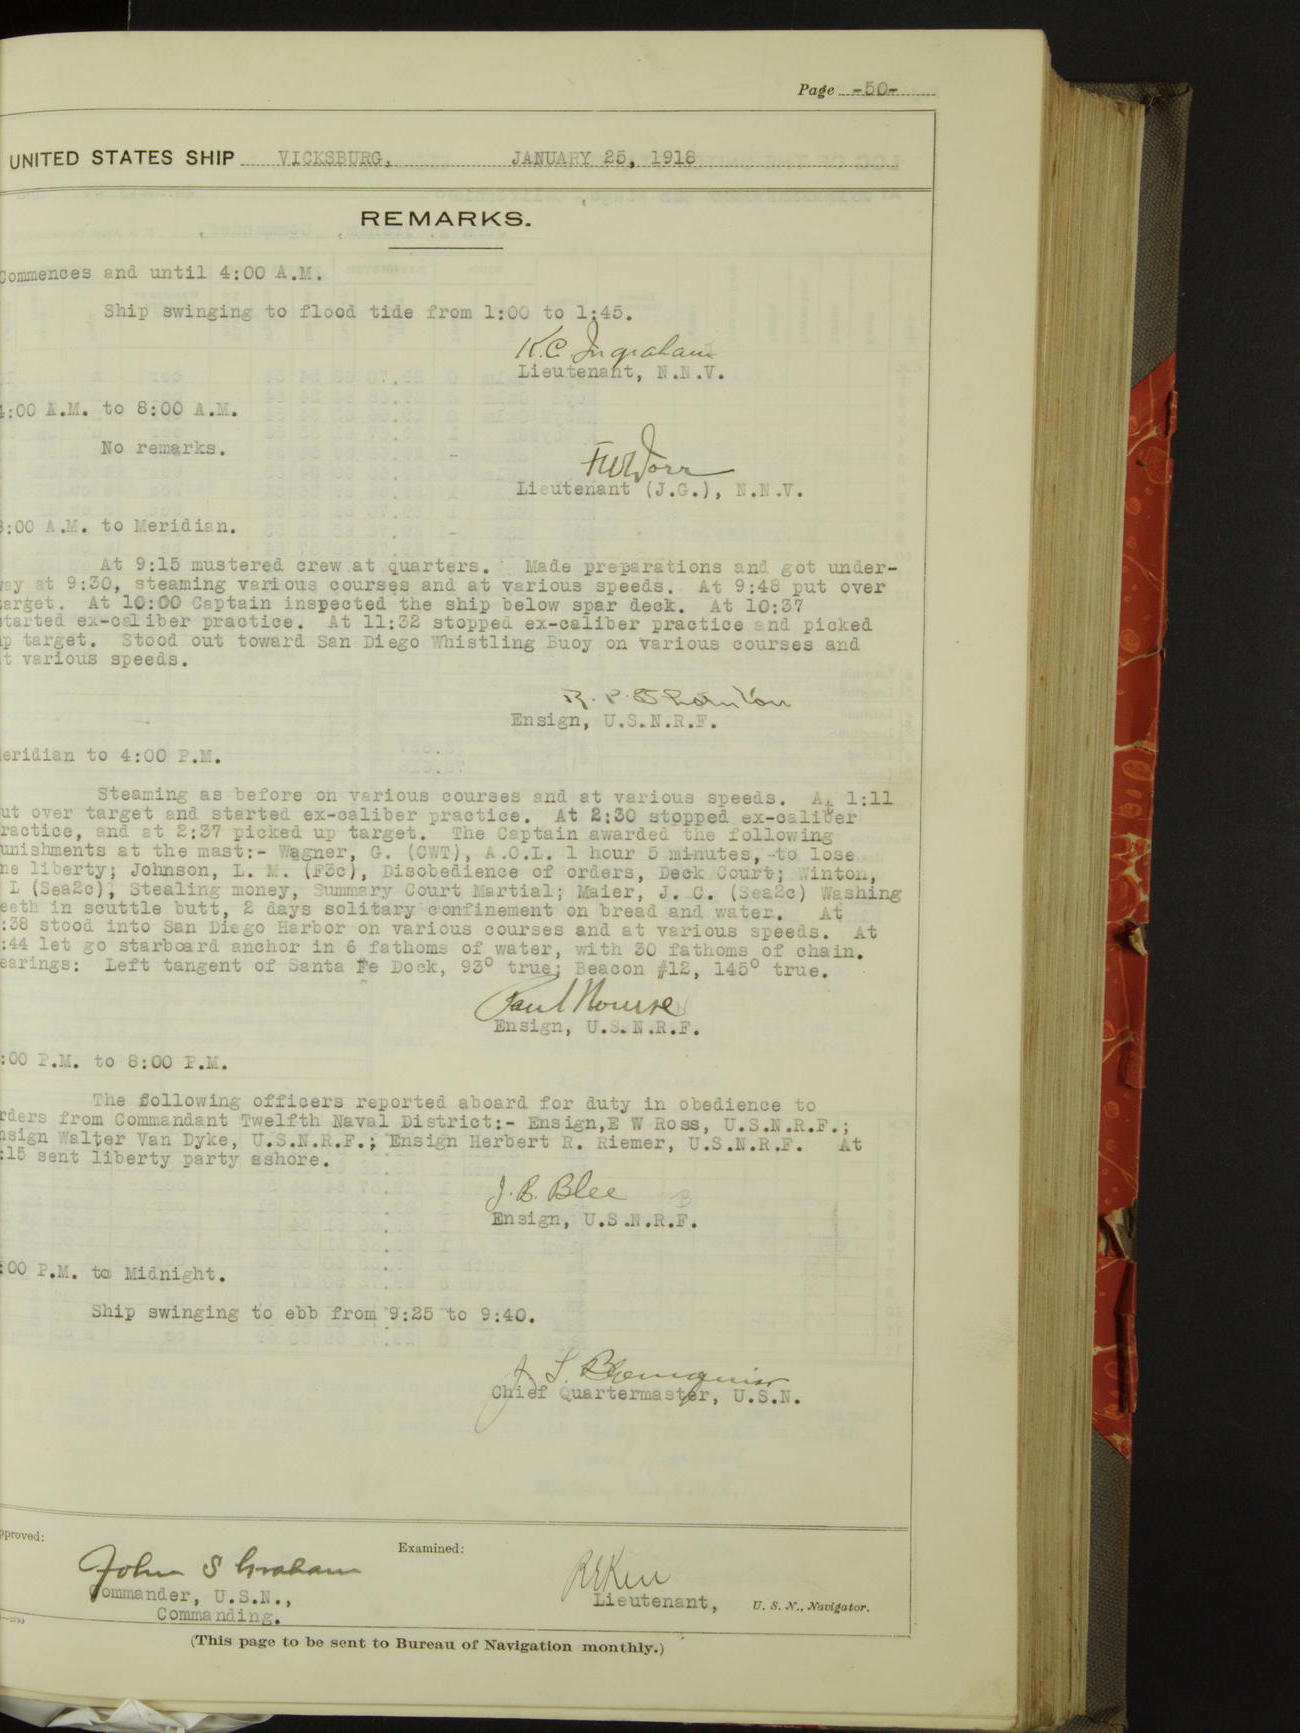 Page -50-
UNITED STATES SHIP VICKSBURG, JANUARY 25, 1918
REMARKS.
Commences and until 4:00 A.M.
Ship swinging to flood tide from 1:00 to 1:45.
K.C. Ingraham
Lieutenant, N.N.V.
4:00 A.M. to 8:00 A.M.
No remarks.
Lieutenant (J.G.), N.N.V.
8:00 A.M. to Meridian.
At 9:15 mustered crew at quarters. Made preparations and got under-
way at 9:30, steaming various courses and at various speeds. At 9:48 put over
target. At 10:00 Captain inspected the ship below spar deck. At 10:37
started ex-caliber practice. At 11:32 stopped ex-caliber practice and picked
up target. Stood out toward San Diego Whistling Buoy on various courses and
at various speeds.
R. P. Thornton
Ensign, U.S.N.R.F.
eridian to 4:00 P.M.
Steaming as before on various courses and at various speeds. At 1:11
ut over target and started ex-caliber practice. At 2:30 stopped ex-caliber
ractice, and at 2:37 picked up target. The Captain awarded the following
unishments at the mast:- Wagner, G. (CWT), A.O.L. 1 hour 5 minutes, -to lose
ne liberty; Johnson, L. M. (F3c), Disobedience of orders, Deck Court; Winton,
L (Sea2c), Stealing money, Summary Court Martial; Maier, J. C. (Sea2c) Washing
eeth in scuttle butt, 2 days solitary confinement on bread and water. At
:38 stood into San Diego Harbor on various courses and at various speeds. At
:44 let go starboard anchor in 6 fathoms of water, with 30 fathoms of chain.
earings: Left tangent of Santa Fe Dock, 93° true; Beacon #12, 145° true.
Paul Nourse
Ensign, U.S.N.R.F.
:00 P.M. to 8:00 P.M.
The following officers reported aboard for duty in obedience to
rders from Commandant Twelfth Naval District:- Ensign,E W Ross, U.S.N.R.F.;
nsign Walter Van Dyke, U.S.N.R.F.; Ensign Herbert R. Riemer, U.S.N.R.F. At
:15 sent liberty party ashore.
J. B. Blee
Ensign, U.S.N.R.F.
:00 P.M. to Midnight.
Ship swinging to ebb from 9:25 to 9:40.
Chief Quartermaster, U.S.N.
pproved:
Examined:
John S Graham
Commander, U.S.N.,
Commanding.
Lieutenant, U. S. N., Navigator.
(This page to be sent to Bureau of Navigation monthly.)